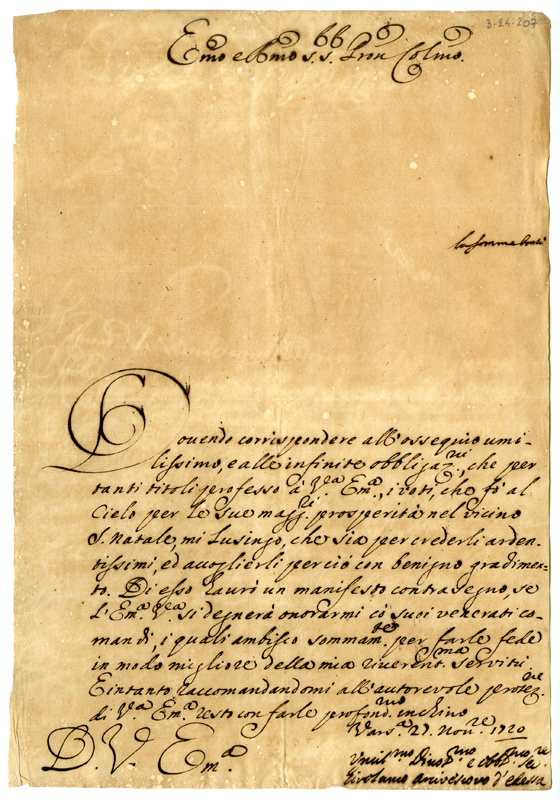 3-24-207
Emo e Rmo S.r Pron Colmo.
la somma bontà
Dovendo corrispondere all'ossequio umi-
lissimo, e alle infinite obbligaz.ni, che per
tanti titoli professo à V.ra Em.a, i voti, che fò al
Cielo per le Sue magg.ri prosperità nel vicino
S. Natale, mi Lusingo, che sia per crederli arden-
tissimi, ed accoglierli perciò con benigno gradimen-
to. Di esso haurò un manifesto contrasegno, se
l'Em.a V.ra si degnerà onorarmi cò suoi venerati co-
mandi, i quali ambisco sommam.te per farle fede
in modo migliore della mia riverent.ma servitù.
E intanto raccomandandomi all'autorevole protez.ne
di V.ra Em.a resto con farle profond.mo inchino
Vars.a 27. Nov.re 1720
D. V. Em.a
Umil.mo Divot.mo e Obb.mo
Girolamo arcivescovo d'edessa